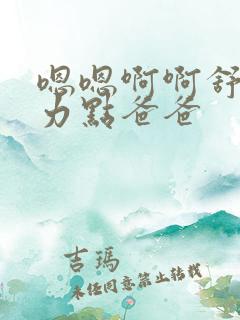 嗯嗯啊啊舒
力點爸爸
吉瑪
未經同意禁止轉載